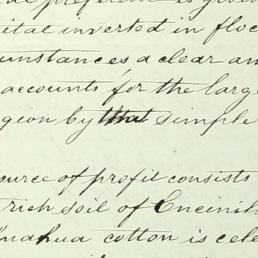 ital inverted in floc
cumstances a clear an
accounts for the large
geon by that simple
ource of profit consists
rich soil of Encinill
huahua cotton is cele